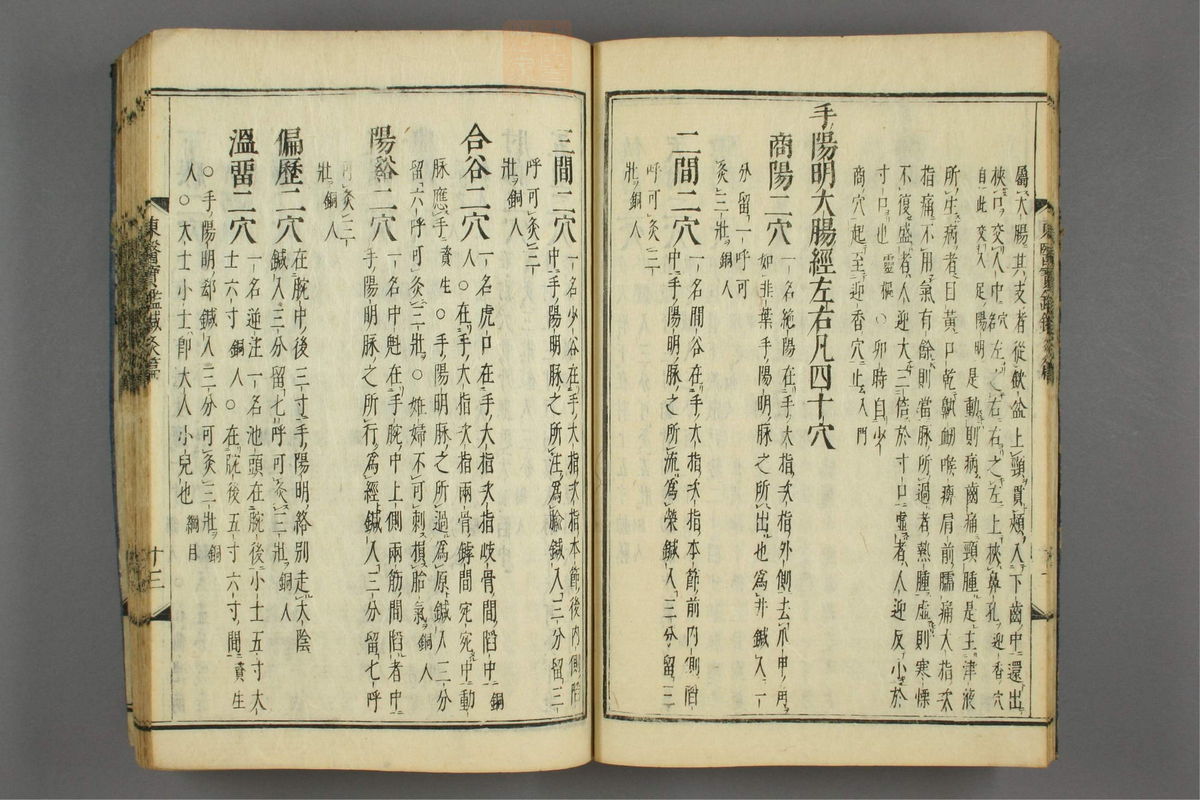 屬大腸其支者從缺盆上頸貫頰入下齒中還出
挾口交人中穴名左之右右之左上挾鼻孔迎香穴
自此交入足陽明是動則病齒痛頸腫是主津液
所生病者目黃口乾鼽衄喉痺肩前臑痛大指次
指痛不用氣有餘則當脉所過者熱腫虛則寒慄
不復盛者人迎大三倍於寸口虛者人迎反小於
寸口也靈樞○卯時自少
商穴起至迎香穴止入門
手陽明大腸經左右凡四十穴
商陽二穴一名絶陽在手大指次指外側去爪甲角
如韭葉手陽明脉之所出也爲井鍼入一
分留一呼可
灸三壯銅人
二間二穴一名間谷在手大指次指本節前內側陷
中手陽明脉之所流爲滎鍼入三分留三
呼可灸三
壯銅人
三間二穴一名少谷在手大指次指本節後內側陷
中手陽明脉之所注爲腧鍼入三分留三
呼可灸三
壯銅人
合谷二穴一名虎口在手大指次指歧骨間陷中銅
人○在手大指次指兩骨罅間宛宛中動
脉應手資生○手陽明脉之所過爲原鍼入三分
留六呼可灸三壯○姙婦不可刺損胎氣銅人
陽谿二穴一名中魁在手腕中上側兩筋間陷者中
手陽明脉之所行爲經鍼入三分留七呼
可灸三
壯銅人
偏歷二穴在腕中後三寸手陽明絡別走太陰
鍼入三分留七呼可灸三壯銅人
溫留二穴一名逆注一名池頭在腕後小士五寸大
士六寸銅人○在腕後五寸六寸間資生
○手陽明郄鍼入三分可灸三壯銅
人○大士小士即大人小兒也綱目
東醫寶鑑鍼灸篇 十三